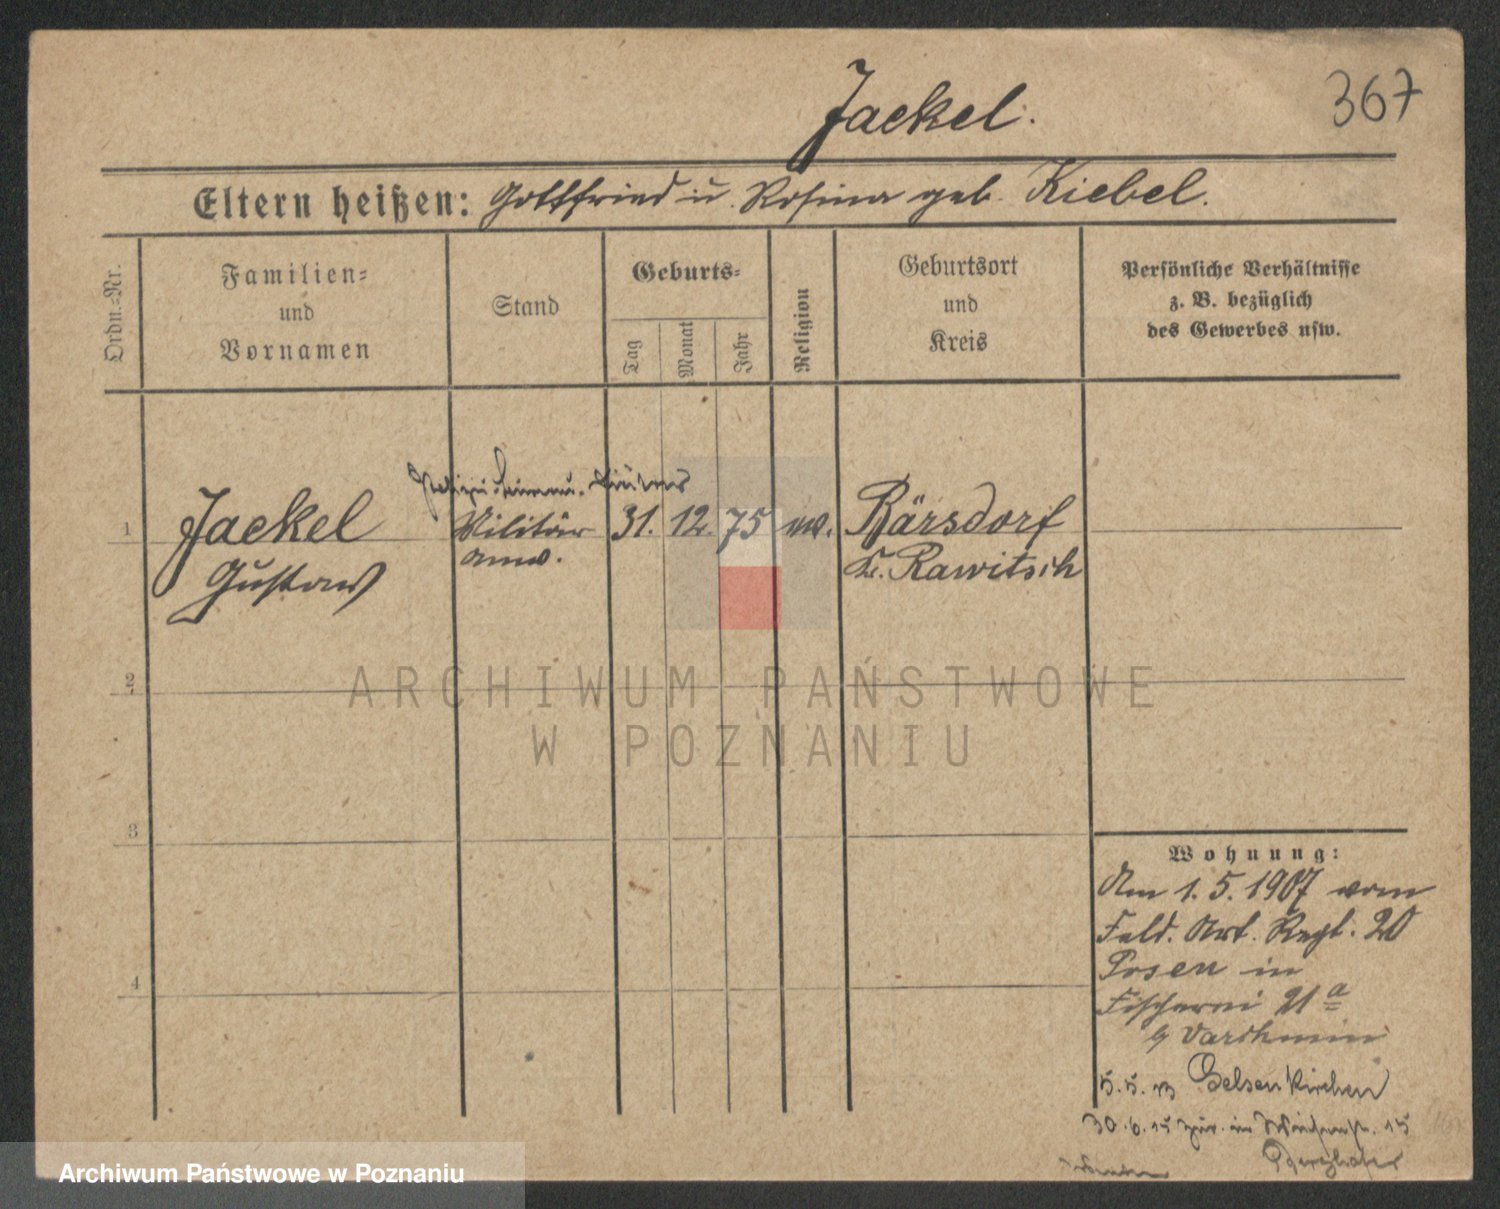 Jaekel.
367
Eltern heißen: Gottfried u. Rosina geb. Kiebel.
Ordn.-Nr.
Familien-
und
Vornamen
Stand
Geburts-
Tag
Monat
Jahr
Religion
Geburtsort
und
Kreis
Persönliche Verhältnisse
z. B. bezüglich
des Gewerbes usw.
1
Jaekel
Gustav
Militär
anw.
31. 12. 75
Bärsdorf
Kr. Rawitsch
2
3
4
Wohnung:
Am 1. 5. 1907 vom
Feld. Art. Regt. 20
Posen in
Fischerei 21 a
b/
5. 5. 13 Gelsenkirchen
30. 6. 15 zur. in 15
ARCHIWUM PAŃSTWOWE
W POZNANIU
Archiwum Państwowe w Poznaniu